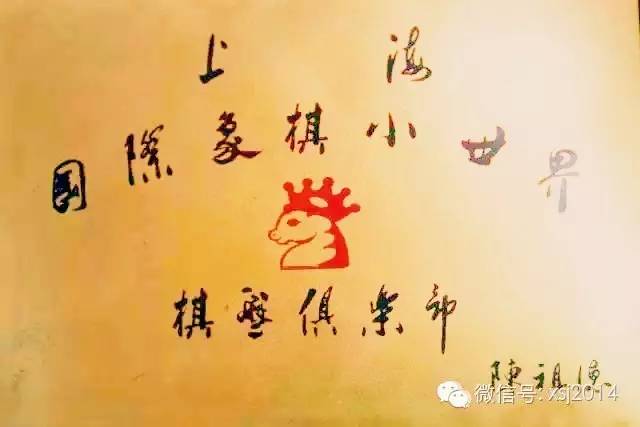 上海
国際象棋小世界
棋盤俱楽部
陳祖德
微信号: xsj2014